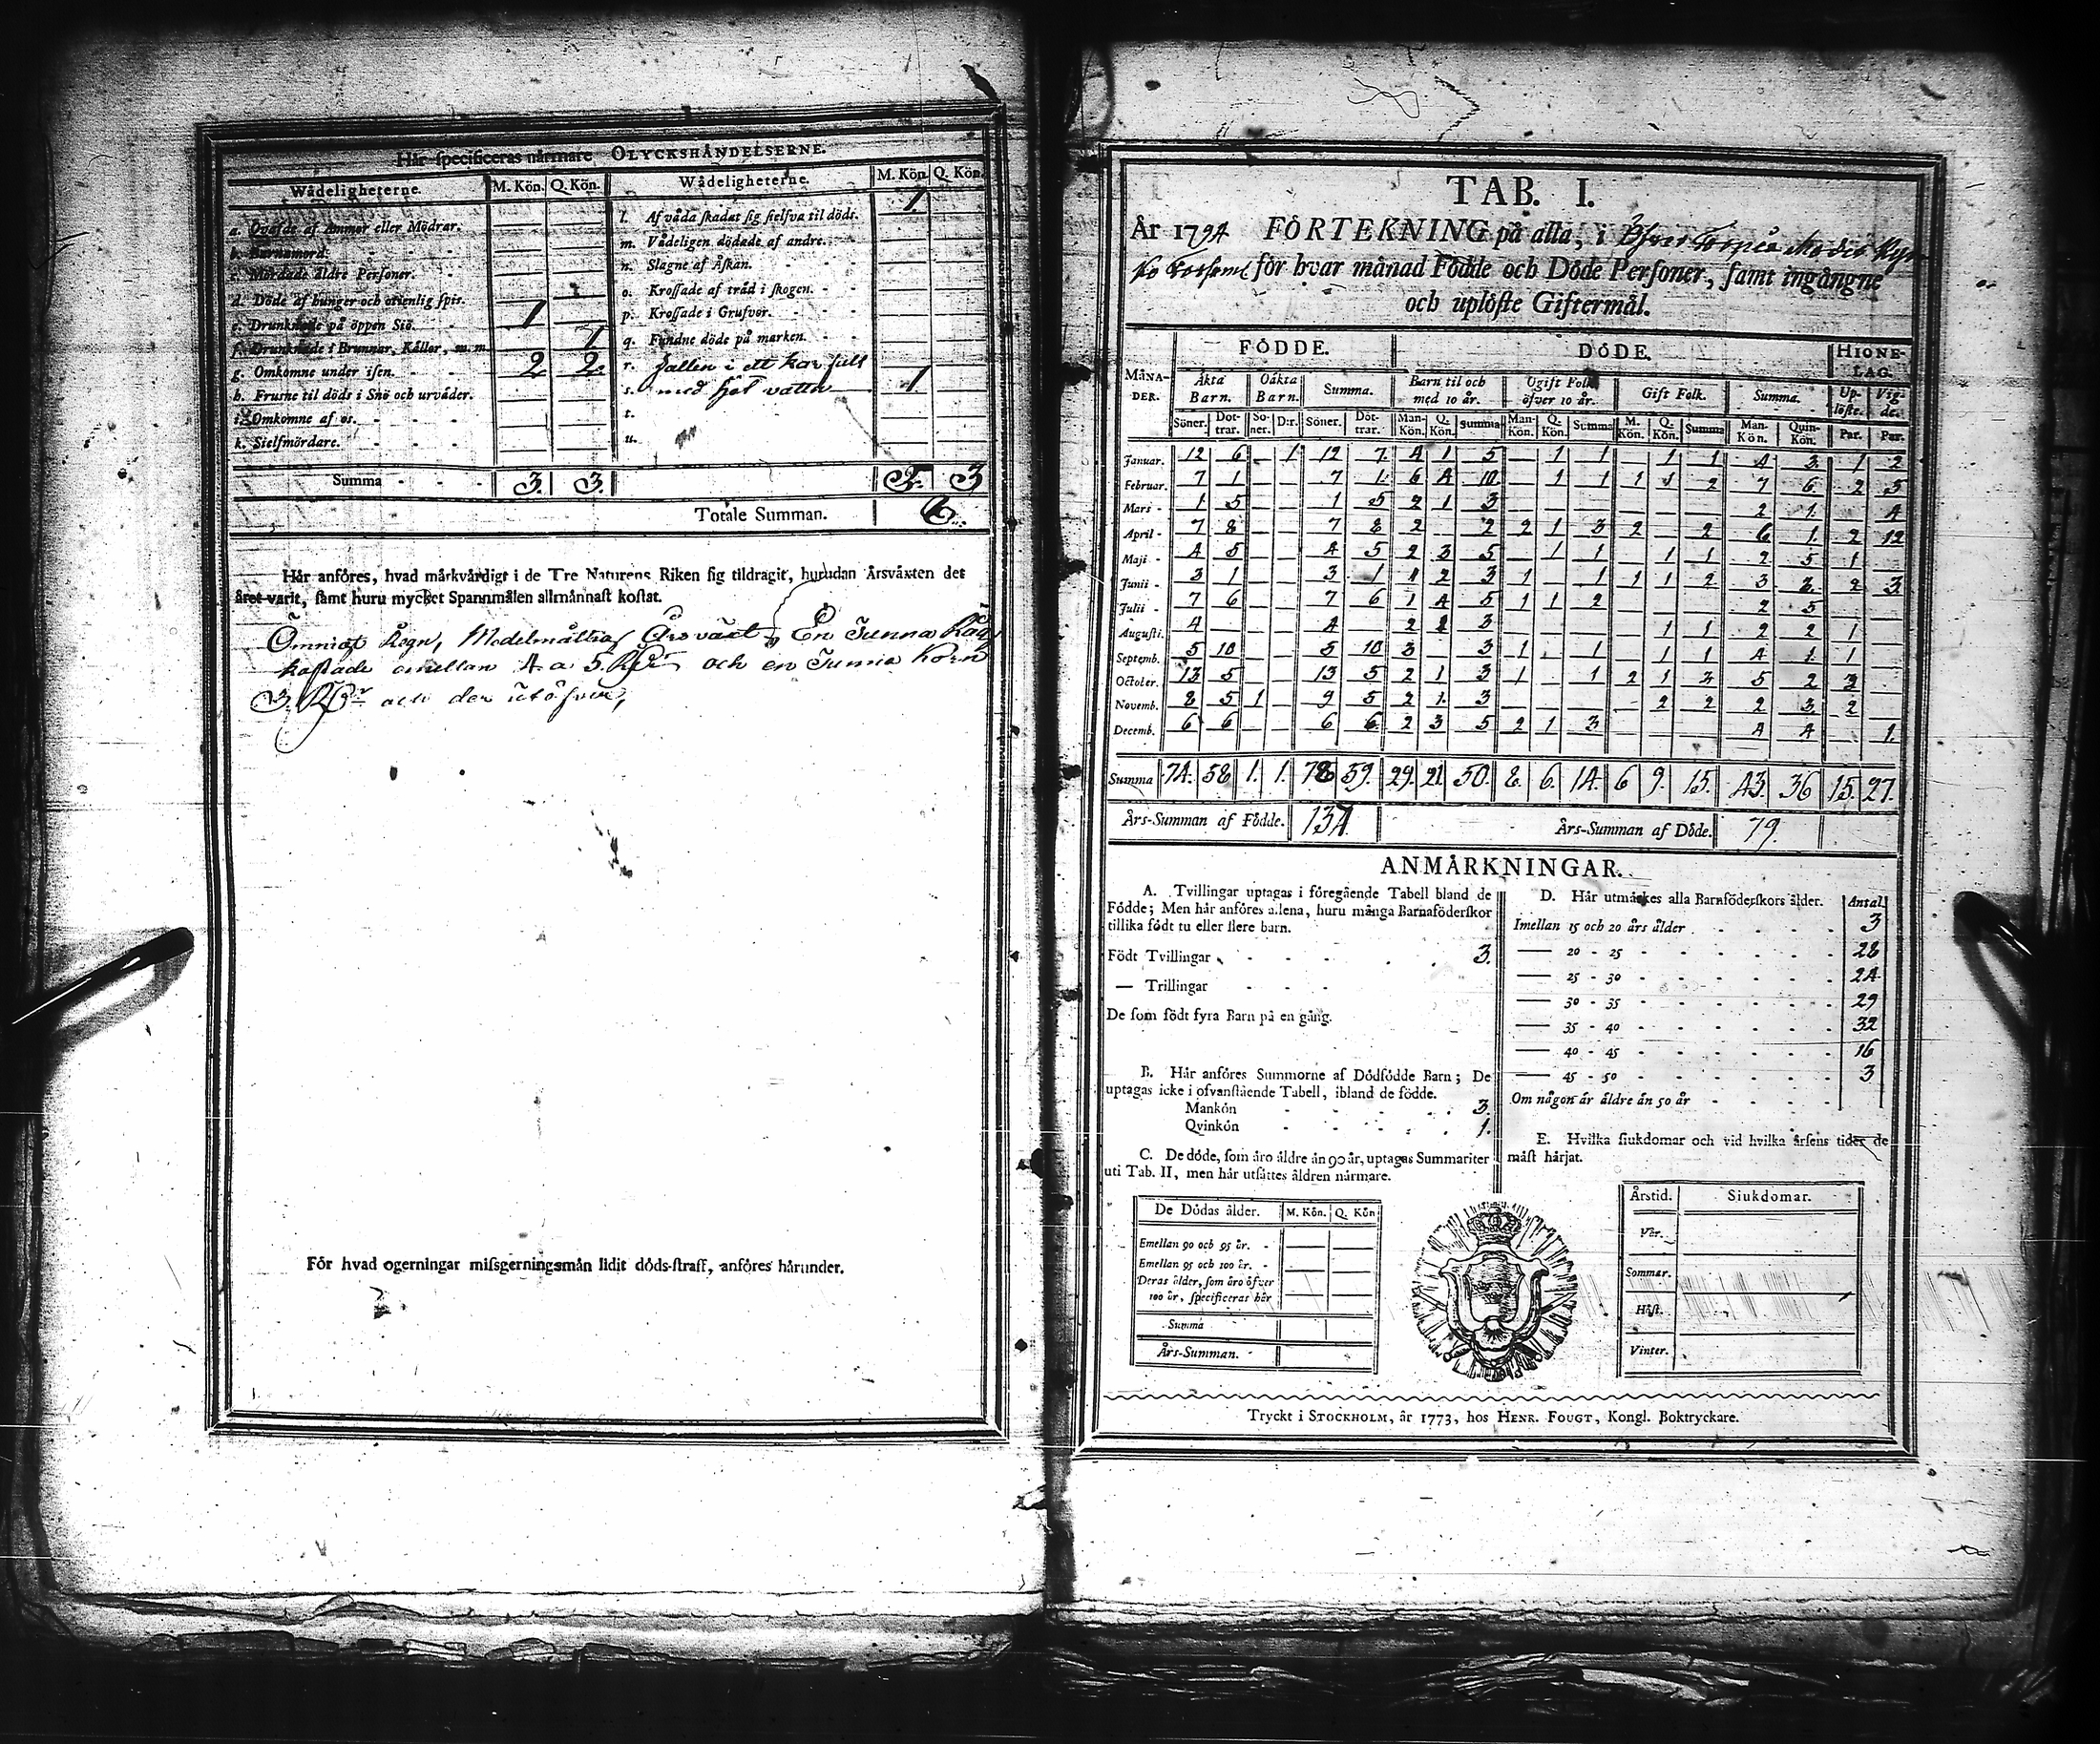 Här specificeras närmare OLYCKSHÄNDELSERNE.
Wådeligheterne. M. Kön. Q. Kön. Wådeligheterne. M. Kön. Q. Kön.
a. Qväfde af Ammor eller Mödrar. l. Af våda skadat sig sielfva til döds. 1.
b. Barnamord. m. Vådeligen dödade af andre.
c. Mördade äldre Personer. n. Slagne af Åskan.
d. Döde af hunger och otienlig spis. o. Krossade af träd i skogen.
e. Drunknade på öppen Siö. 1 p. Krossade i Grufvor.
f. Drunknade i Brunnar, Källor, m. m. 1 q. Fundne döde på marken.
g. Omkomne under isen. 2 2 r. fallen i ett kar fult
h. Frusne til döds i Snö och urväder. s. med het vatten 1
i. Omkomne af os. t.
k. Sielfmördare. u.
Summa 3. 3. 3
Totale Summan. 6
Här anföres, hvad märkvärdigt i de Tre Naturens Riken sig tildragit, hurudan Årsväxten det
året varit, samt huru mycket Spannmålen allmännast kostat.
Ömnigt Regn, Medelmåttig Årsväxt, En Tunna Råg
kostade emellan 4 a 5 Rdr och en Tunna Korn
3 Rdr och der utöfver,
För hvad ogerningar missgerningsmän lidit döds-straff, anföres härunder.
TAB. I.
År 1794 FÖRTEKNING på alla, i Öfver Torneå
för hvar månad Födde och Döde Personer, samt ingångne
och uplöste Giftermål.
FÖDDE. DÖDE. HIONE-
LAG.
MÅNA-
DER. Äkta
Barn. Oäkta
Barn. Summa. Barn til och
med 10 år. Ogift Folk
öfver 10 år. Gift Folk. Summa. Up-
löste. Vig-
de.
Söner. Döt-
trar. Sö-
ner. D:r. Söner. Döt-
trar. Man-
Kön. Q.
Kön. Summa Man-
Kön. Q.
Kön. Summa M.
Kön. Q.
Kön. Summa Man-
Kön. Quin-
Kön. Par. Par.
Januar. 12 6 — 1 12 7 4 1 5 — 1 1 — 1 1 4 3 1 2
Februar. 7 1 — — 7 1 6 4 10 — 1 1 1 1 2 7 6 2 5
Mars 1 5 — — 1 5 2 1 3 — — — — — — 2 1 — 4
April 7 8 — — 7 8 2 — 2 2 1 3 2 — 2 6 1 2 12
Maji 4 5 — — 4 5 2 3 5 — 1 1 — 1 1 2 5 1 —
Junii 3 1 — — 3 1 1 2 3 1 — 1 1 1 2 3 3 2 3
Julii 7 6 — — 7 6 1 4 5 1 1 2 — — — 2 5 — —
Augusti. 4 — — — 4 — 2 1 3 — — — — 1 1 2 2 1 —
Septemb. 5 10 — — 5 10 3 — 3 1 — 1 — 1 1 4 1 1 —
Octoler. 13 5 — — 13 5 2 1 3 1 — 1 2 1 3 5 2 3 —
Novemb. 8 5 1 — 9 5 2 1 3 — — — — 2 2 2 3 2 —
Decemb. 6 6 — — 6 6 2 3 5 2 1 3 — — — 4 4 — 1.
Summa 74. 58 1. 1. 59. 29. 21 50. 8. 6. 14. 6 9. 15. 43. 36 15. 27.
Års-Summan af Födde. 134 Års-Summan af Döde. 79.
ANMÄRKNINGAR.
A. Tvillingar uptagas i föregående Tabell bland de
Födde; Men här anföres allena, huru många Barnaföderskor
tillika födt tu eller flere barn.
Födt Tvillingar 3.
— Trillingar
De som födt fyra Barn på en gång.
B. Här anföres Summorne af Dödfödde Barn; De
uptagas icke i ofvanstående Tabell, ibland de födde.
Mankön 3.
Qvinkön 1.
C. De döde, som äro äldre än 90 år, uptagas Summariter
uti Tab. II, men här utsättes åldren närmare.
De Dödas ålder. M. Kön. Q. Kön
Emellan 90 och 95 år.
Emellan 95 och 100 år.
Deras ålder, som äro öfver
100 år, specificeras här
Summa
Års-Summan.
D. Här utmärkes alla Barnföderskors ålder. Antal
Imellan 15 och 20 års ålder 3
— 20 - 25 28
— 25 - 30 24
— 30 - 35 29
— 35 - 40 32
— 40 - 45 16
— 45 - 50 3
Om någon är äldre än 50 år
E. Hvilka siukdomar och vid hvilka årsens tider de
mäst härjat.
Årstid. Siukdomar.
Vår.
Sommar.
Höst.
Vinter.
Tryckt i STOCKHOLM, år 1773, hos HENR. FOUGT, Kongl. Boktryckare.